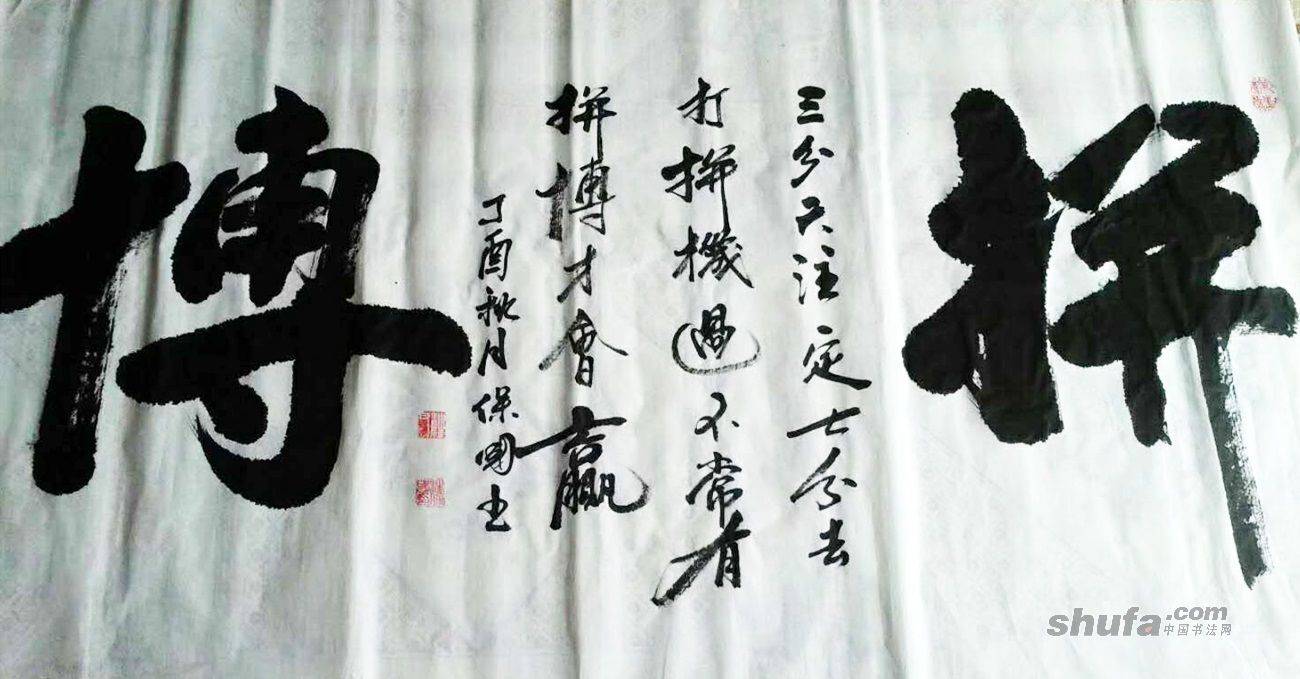 拼
三分天注定七分去
打拼機遇不常有
拼博才會贏
丁酉秋月保國书
博
shufa.com
中国书法网